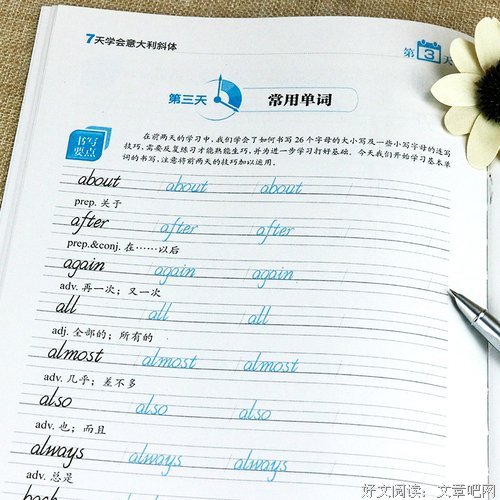 7天学会意大利斜体
第3天
第三天 常用单词
书写
要点
在前两天的学习中，我们学会了如何书写26个字母的大小写及一些小写字母的连写
技巧，需要反复练习才能熟能生巧，并为进一步学习打好基础。今天我们开始学习基本单
词的书写，注意将前两天的技巧加以运用。
about about about
prep. 关于
after after after
prep.&conj. 在……以后
again again again
adv. 再一次；又一次
all all all
adj. 全部的；所有的
almost almost almost
adv. 几乎；差不多
also also also
adv. 也；而且
always always always
adv. 总是
好文阅读：文章吧网